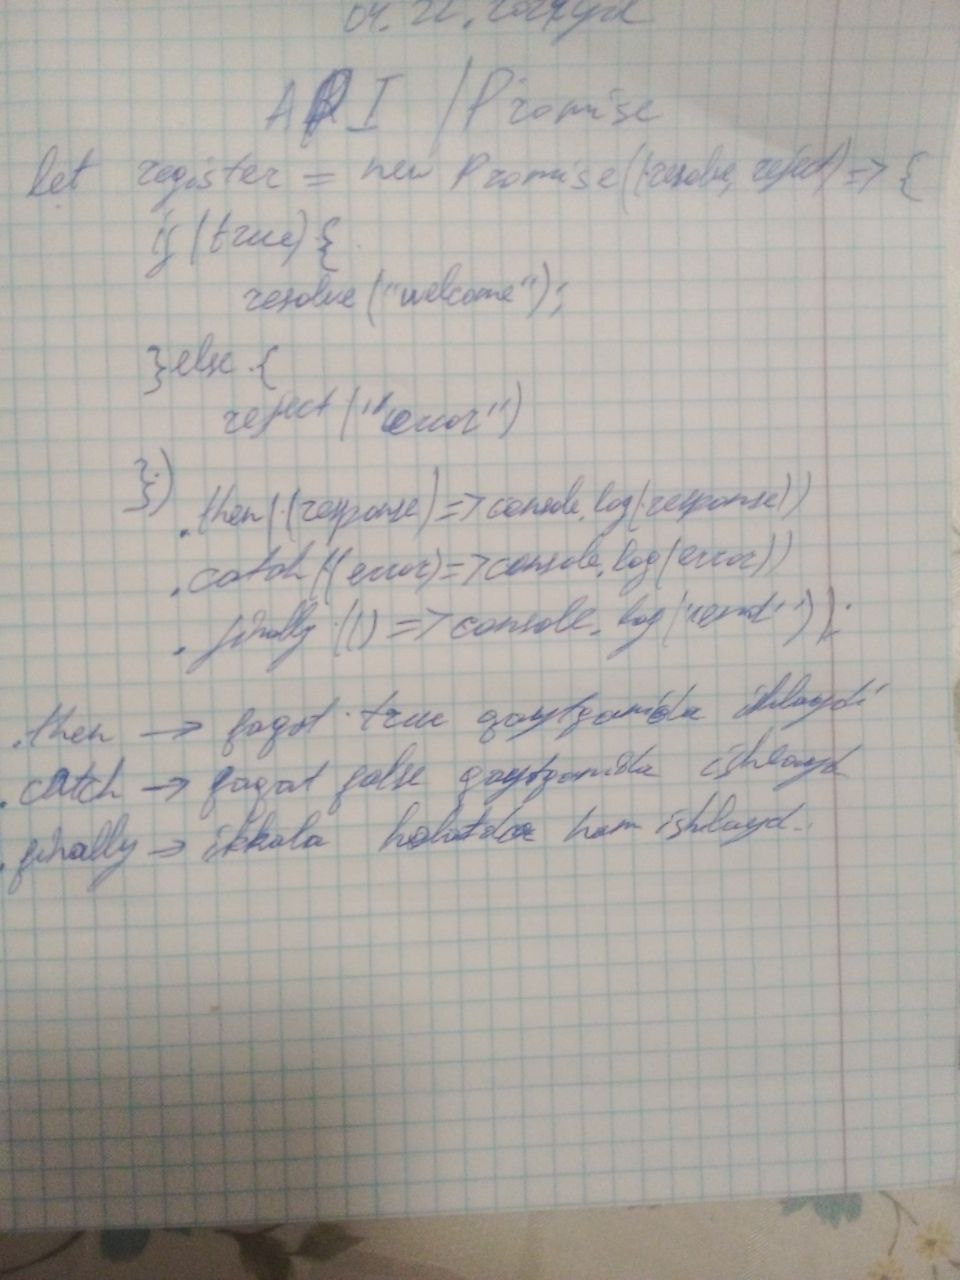 API / Promise
let register = new Promise((resolve, reject) => {
if (true) {
resolve("welcome");
} else {
reject ("error")
}})
.then((response) => console.log(response))
.catch((error) => console.log(error))
.finally (() => console.log("end"));
.then → faqat true qaytganida ishlaydi
.catch → faqat false qaytganida ishlayd
.finally → ikkala holatda ham ishlayd.